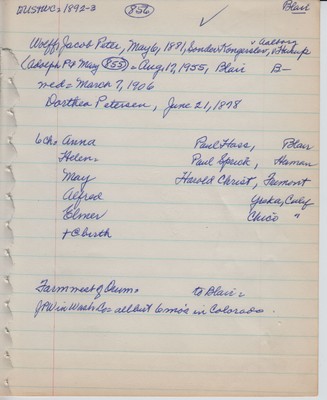 DUSTWC = 1892-3 856 Blair
Wolff, Jacob Peter, May 6, 1881, Sonder Kongerslev, Aalborg
(Adolph P & May 855) = Aug. 17, 1955, Blair B—
wed = March 7, 1906
Dorthea Petersen, June 21, 1878
6ch = Anna Paul Hass, Blair
Helen = Paul Sprick, Herman
May Harold Christ, Fremont
Alfred Yreka, Calif
Elmer Chico "
+ @ birth
Farm west of Orum = to Blair =
JPW in Wash Co = all but 6 mo's in Colorado